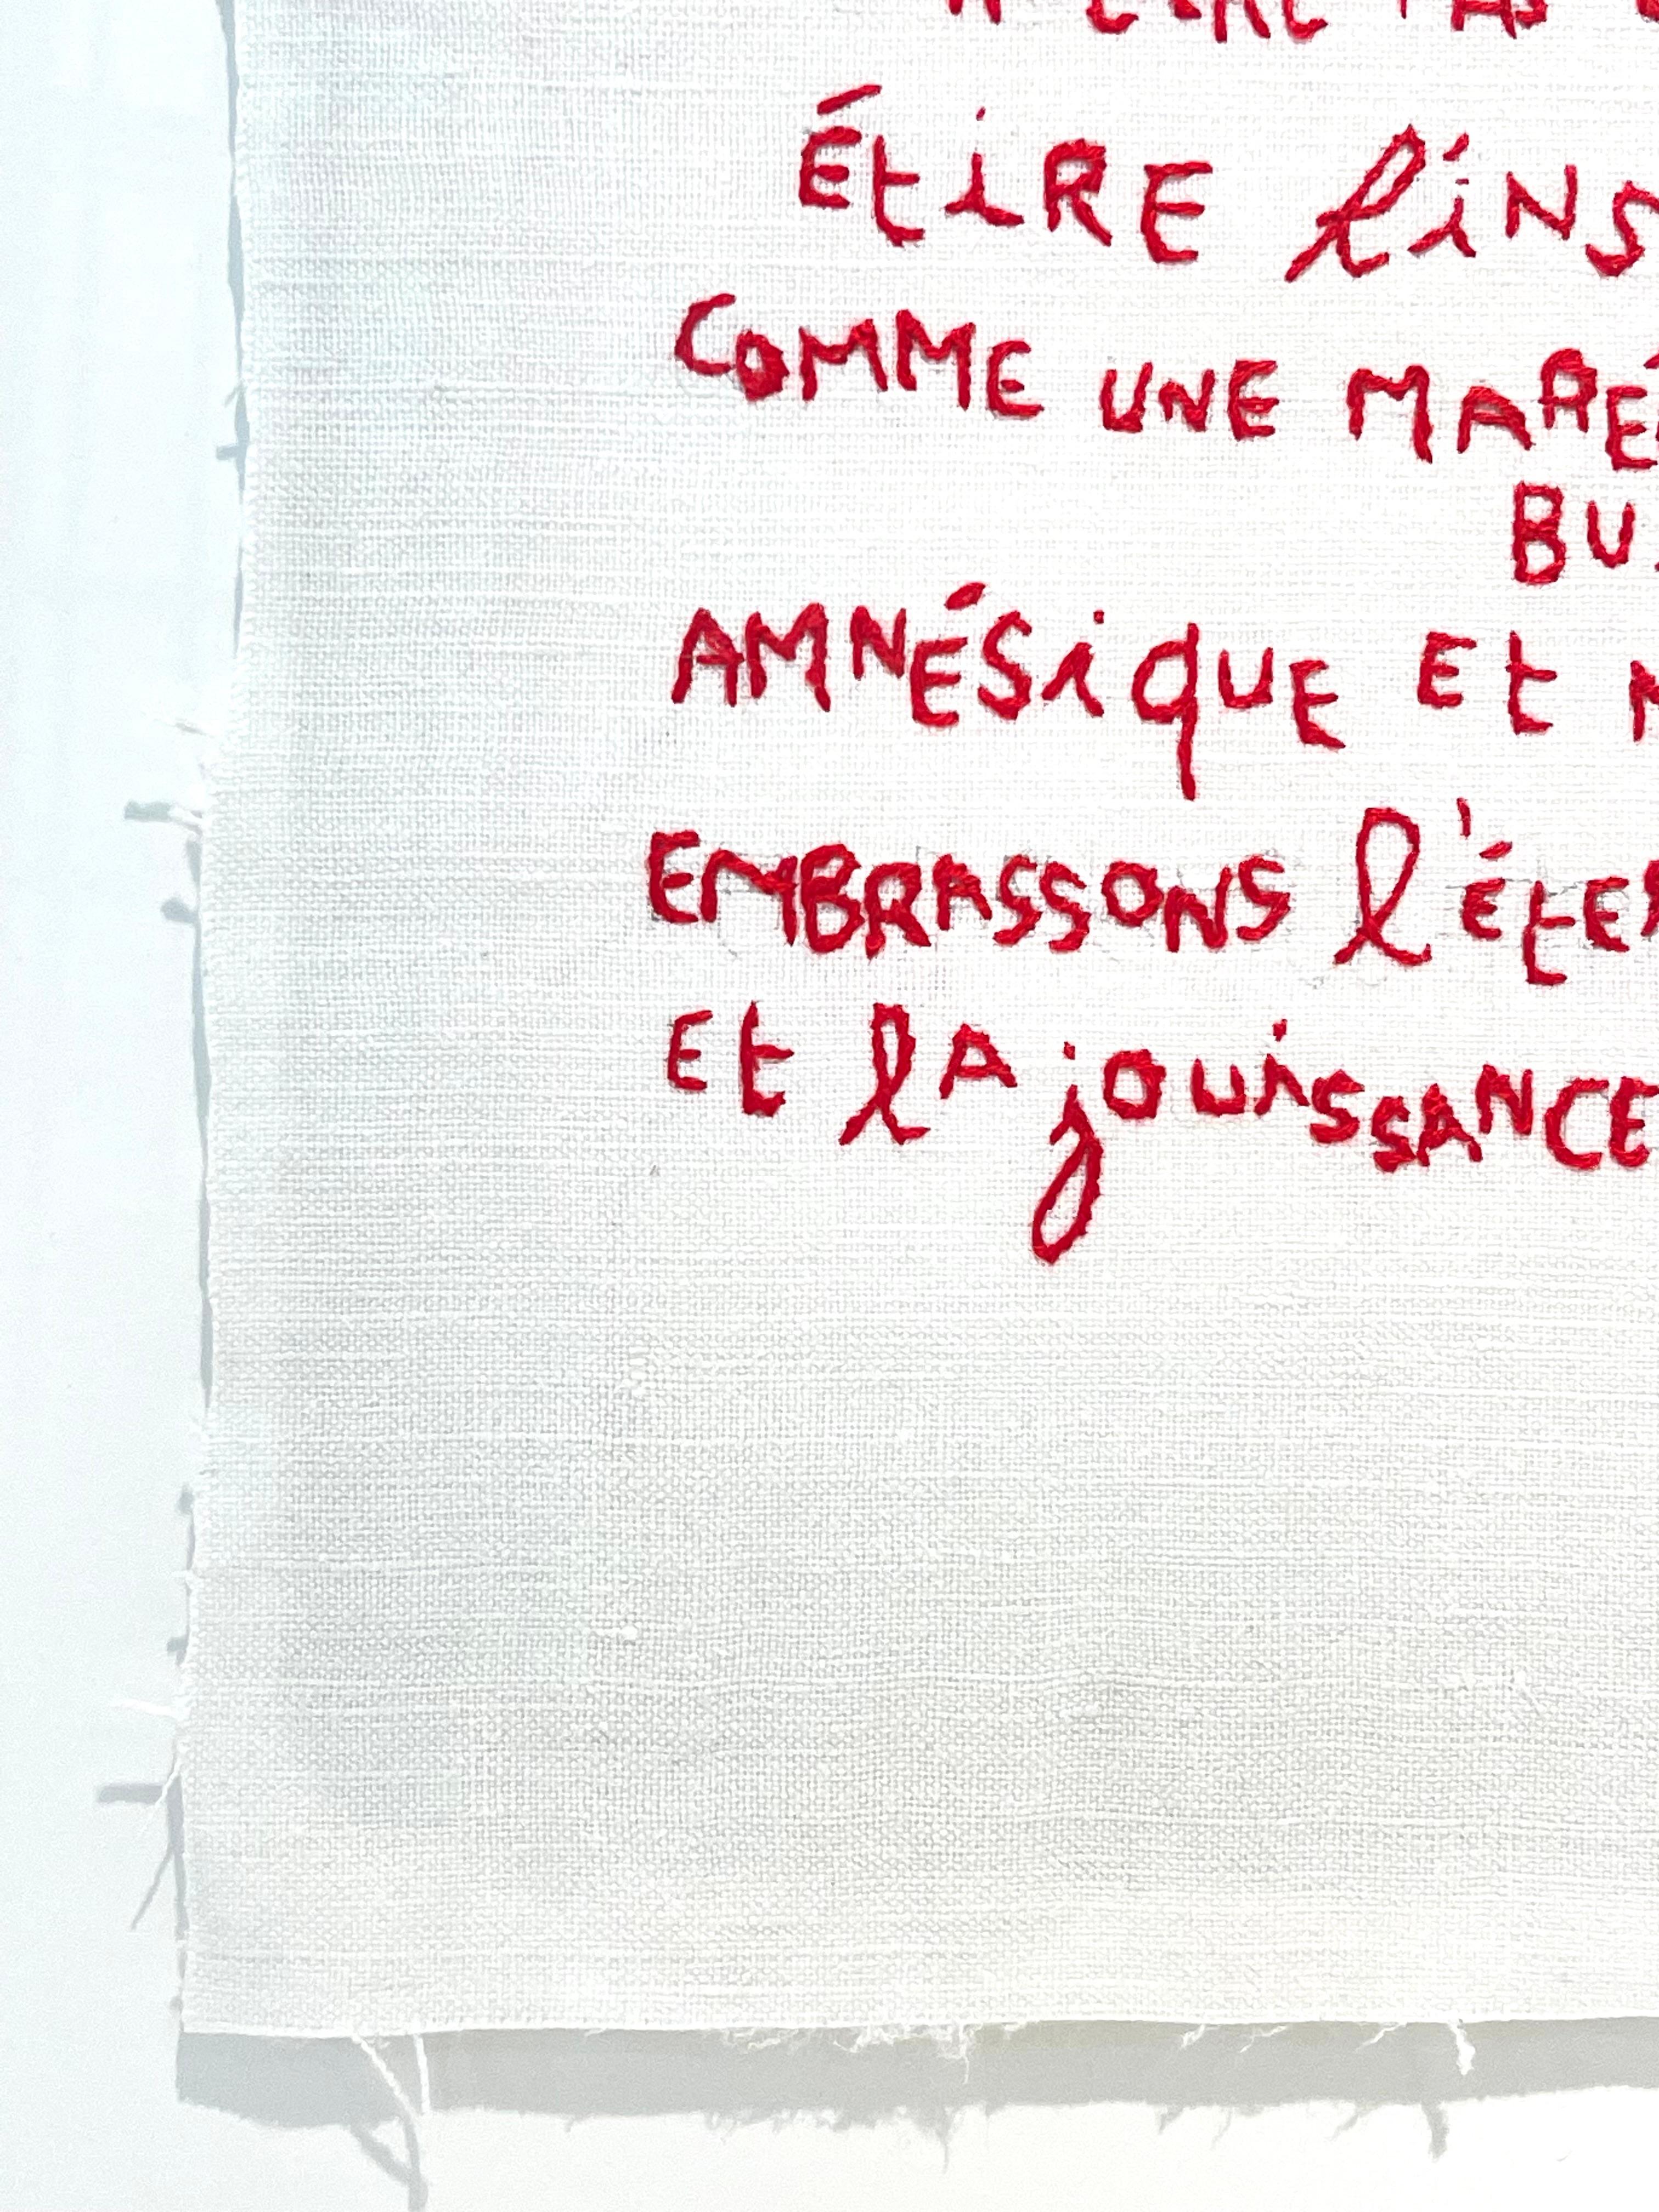 ÉtiRE l'iNS
COMME UNE MARÉ
BU
AMNÉSiqUE Et
EMBRASSONS l'étER
Et lA jOUiSSANCE